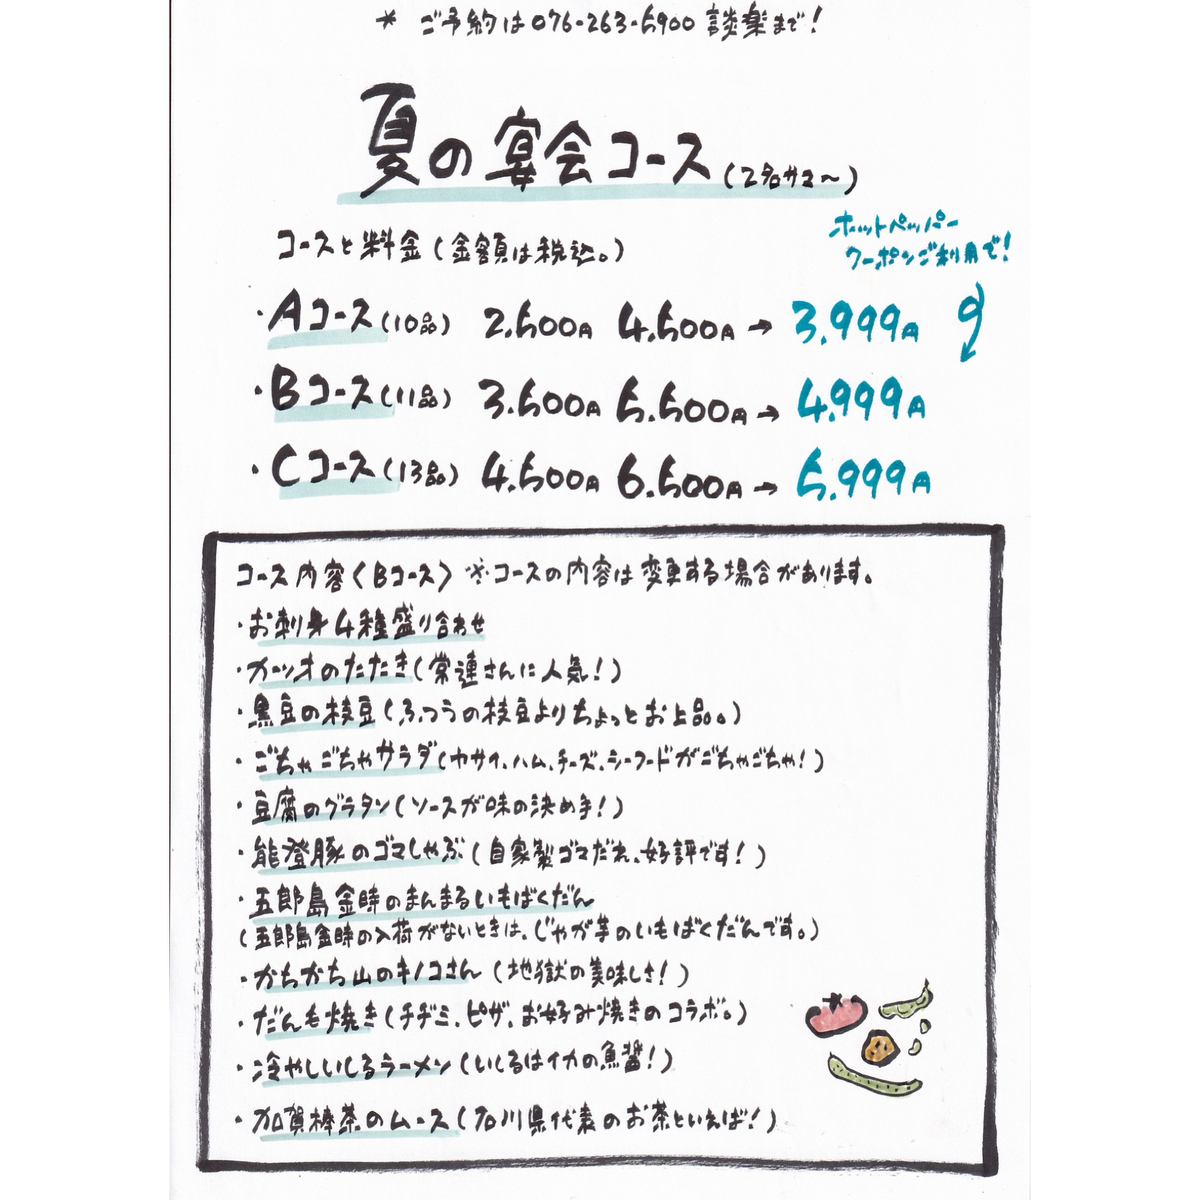 * ご予約は076-263-5900 談楽まで!
夏の宴会コース(2名サマ~)
ホットペッパー
クーポンご利用で!
コースと料金(金額は税込。)
・Aコース(10品) 2.500円 4.500円→3.999円
・Bコース(11品) 3.500円 5.500円→4.999円
・Cコース(13品) 4.500円 6.500円→5.999円
コース内容〈Bコース〉※コースの内容は変更する場合があります。
・お刺身4種盛り合わせ
・カツオのたたき(常連さんに人気!)
・黒豆の枝豆(ふつうの枝豆よりちょっとお上品。)
・ごちゃごちゃサラダ(ヤサイ、ハム、チーズ、シーフードがごちゃごちゃ!)
・豆腐のグラタン(ソースが味の決め手!)
・能澄豚のゴマしゃぶ(自家製ゴマだれ、好評です!)
・五郎島金時のまんまるいもばくだん
(五郎島金時の入荷がないときは、じゃが芋のいもばくだんです。)
・かちかち山のキノコさん(地獄の美味しさ!)
・だんも焼き(チヂミ、ピザ、お好み焼きのコラボ。)
・冷やしいしるラーメン(いしるはイカの魚醤!)
・加賀棒茶のムース(石川県代表のお茶といえば!)